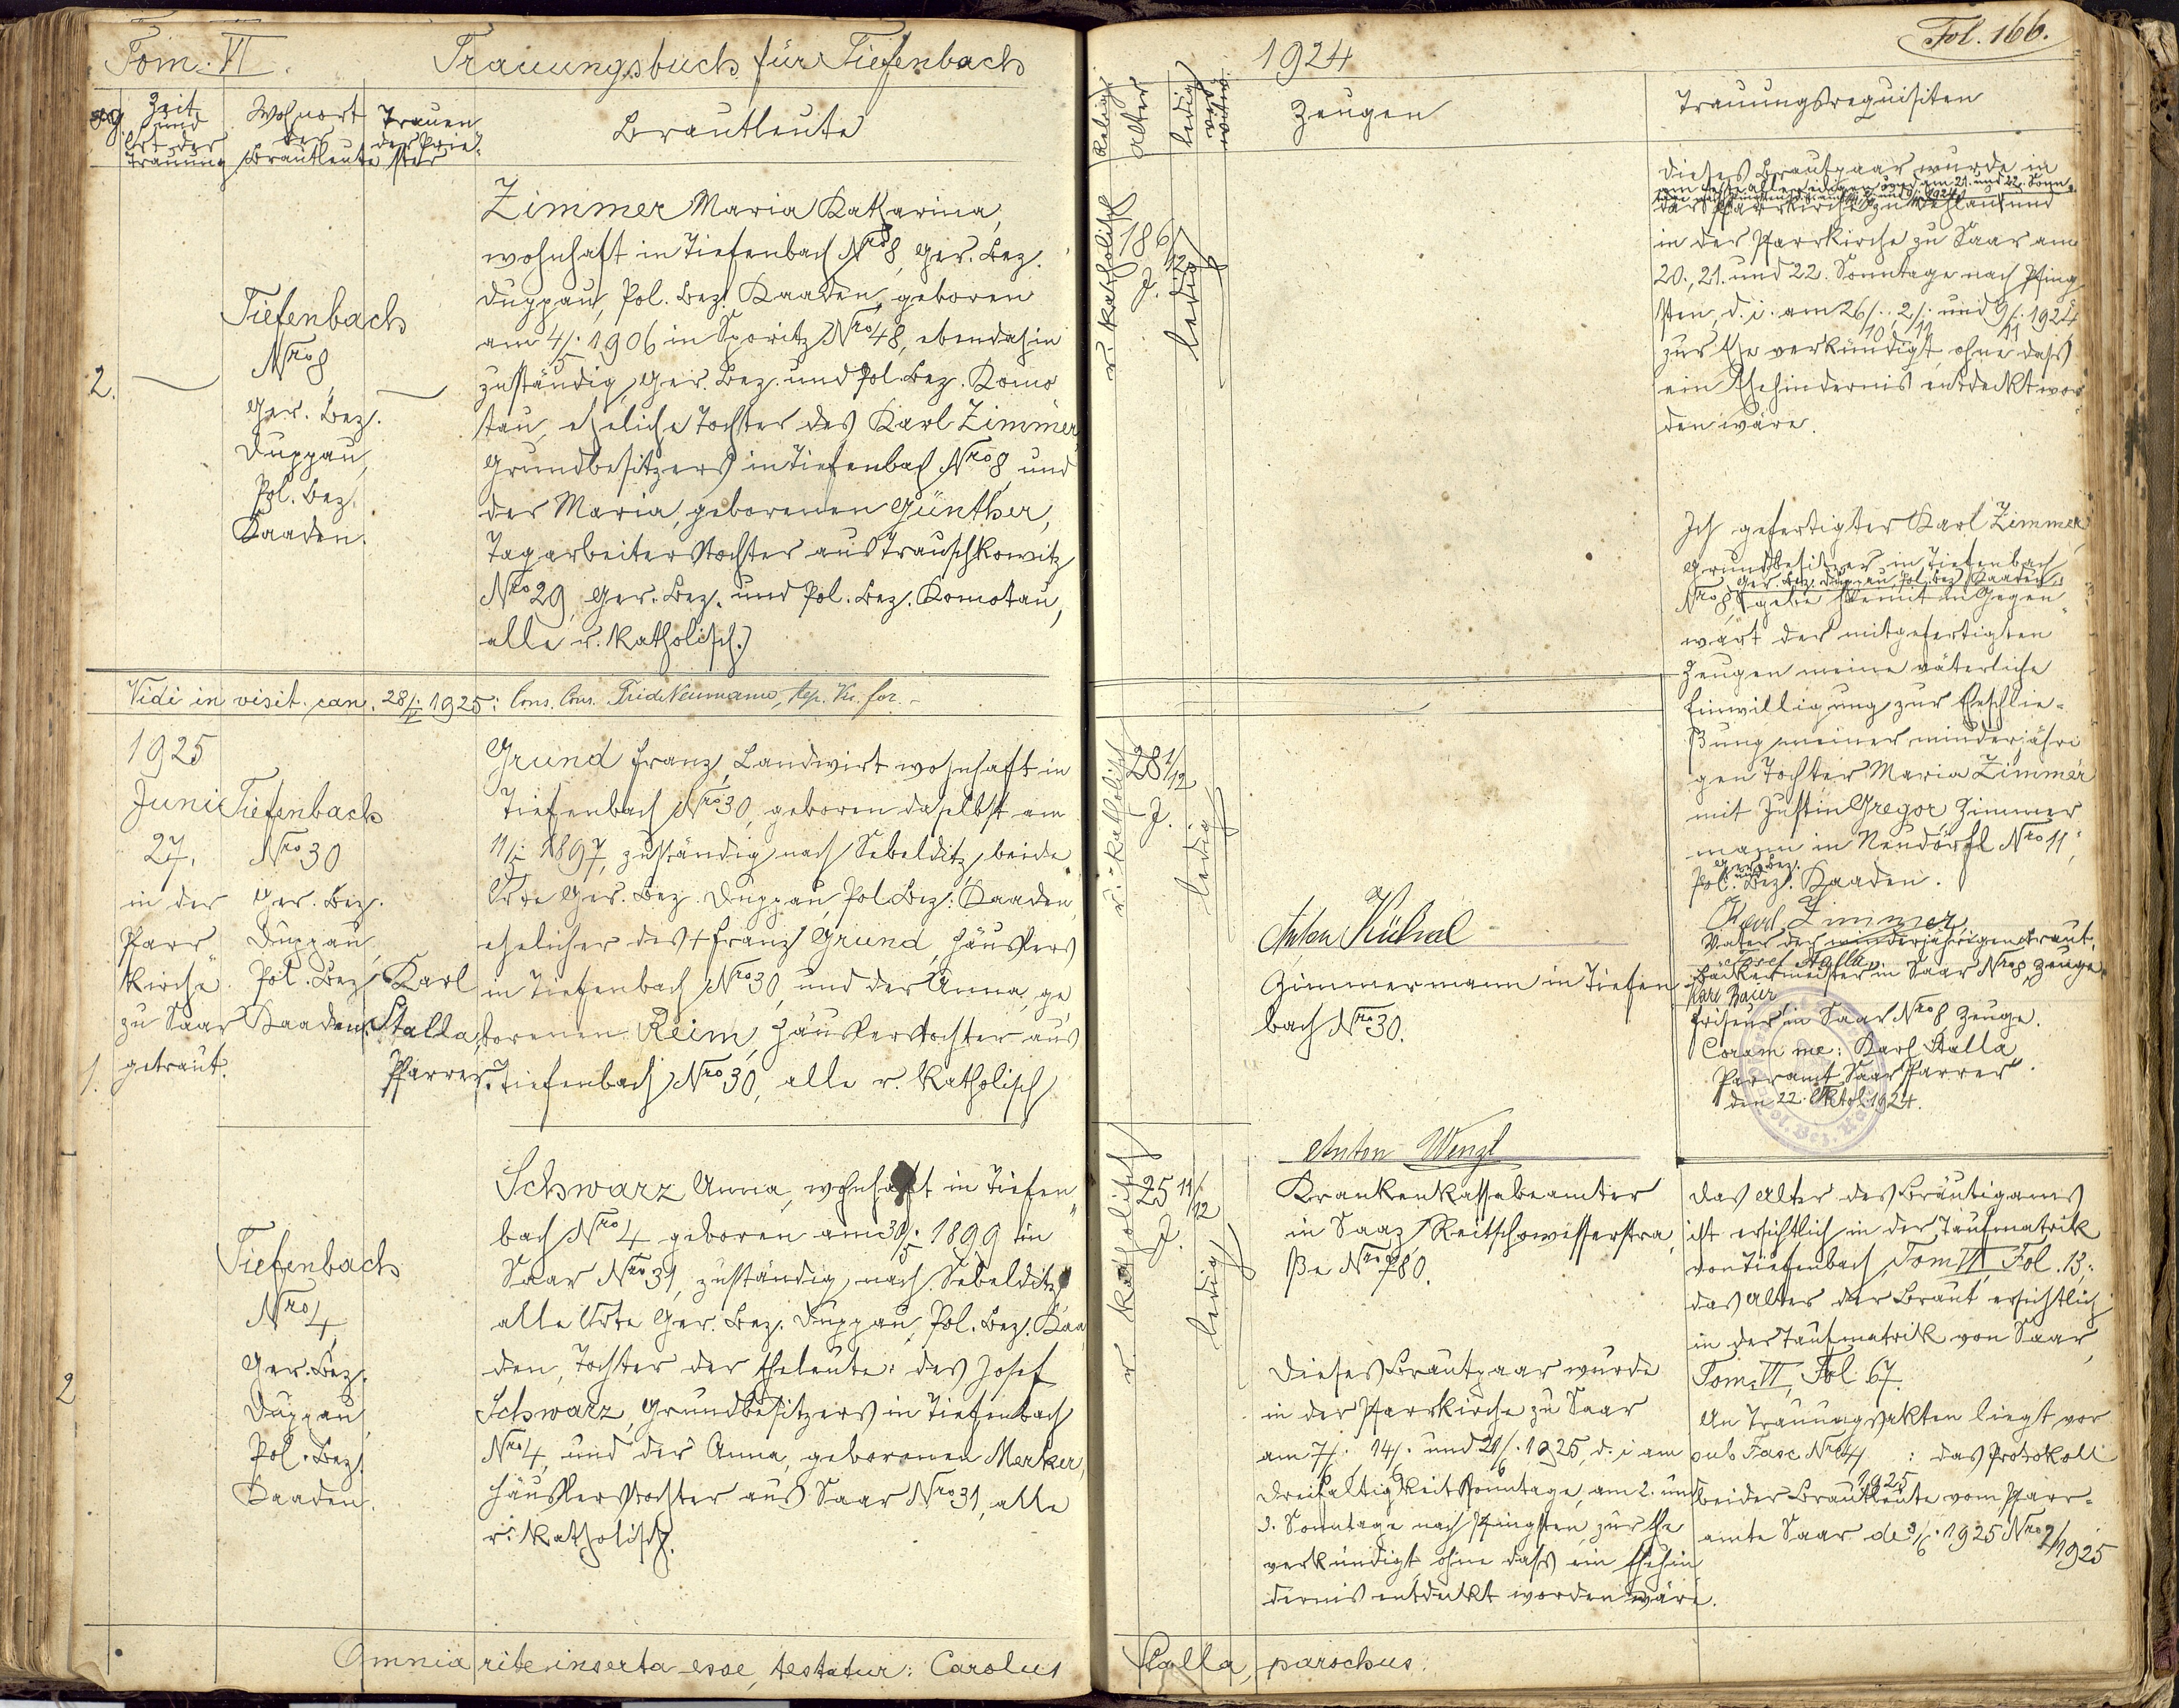 Tom. VI.
Trauungsbuch für Tiefenbach
1924
Fol. 166.
Zeit und Ort der Trauung
Wohnort der Brautleute
Trauender Priester
Brautleute
Religion
Alter
ledig
Zeugen
Trauungsrequisiten
2.
Tiefenbach
Nro 8
Ger. Bez.
Duppau,
Pol. Bez.
Kaaden.
Zimmer Maria Katharina,
wohnhaft in Tiefenbach Nro 8, Ger. Bez.
Duppau, Pol. Bez. Kaaden, geboren
am 4/5. 1906 in Sporitz Nro 48, ebendahin
zuständig, Ger. Bez. und Pol. Bez. Komo
tau, eheliche Tochter des Karl Zimmer,
Grundbesitzers in Tiefenbach Nro 8 und
der Maria, geborenen Günther,
Tagarbeiterstochter aus Trauschkowitz
Nro 29, Ger. Bez. und Pol. Bez. Komotau,
alle r. katholisch.
r. katholisch
18 6/12 J.
ledig
Dieses Brautpaar wurde in
der Pfarrkirche zu Wohlau und
in der Pfarrkirche zu Saar am
20., 21. und 22. Sonntage nach Pfing
sten, d. i. am 26/10., 2/11. und 9/11. 1924
zur Ehe verkündigt, ohne dass
ein Ehehindernis entdeckt wor
den wäre.
Ich gefertigter Karl Zimmer
Grundbesitzer in Tiefenbach
Ger. Bez. Duppau, Pol. Bez. Kaaden,
Nro 8, gebe hiemit in Gegen
wart der mitgefertigten
Zeugen meine väterliche
Einwilligung zur Eheschlie=
ßung meiner minderjähri
gen Tochter Maria Zimmer
mit Justin Gregor, Zimmer
mann in Neudörfl Nro 11,
Ger. Bez. und
Pol. Bez. Kaaden.
Karl Zimmer
Vater der minderjährigen Braut.
Josef Stalla,
Bäckermeister in Saar Nro 8, Zeuge.
Karl Baier
Friseur in Saar Nro 8 Zeuge.
Coram me: Karl Stalla
Pfarramt Saar Pfarrer.
den 22. Oktob. 1924.
Vidi in visit. can. 28/5. 1925:
1925
Juni
27.
in der
Pfarr
kirche
zu Saar
getraut.
1.
Tiefenbach
Nro 30
Ger. Bez.
Duppau,
Pol. Bez.
Kaaden.
Karl
Stalla,
Pfarrer.
Grund Franz, Landwirt wohnhaft in
Tiefenbach Nro 30, geboren daselbst am
11/5. 1897, zuständig nach Sebelditz, beide
Orte Ger. Bez. Duppau, Pol. Bez. Kaaden,
ehelicher des + Franz Grund, Häuslers
in Tiefenbach Nro 30, und der Anna, ge
borenen Reim, Häuslerstochter aus
Tiefenbach Nro 30, alle r. katholisch
r. katholisch
28 1/12 J.
ledig
Anton
Zimmermann in Tiefen
bach Nro 30.
2
Tiefenbach
Nro 4,
Ger. Bez.
Duppau,
Pol. Bez.
Kaaden.
Schwarz Anna, wohnhaft in Tiefen
bach Nro 4 geboren am 30/5. 1899 in
Saar Nro 31, zuständig nach Sebelditz
alle Orte Ger. Bez. Duppau, Pol. Bez. Kaa
den, Tochter der Eheleute: des Josef
Schwarz, Grundbesitzers in Tiefenbach
Nro 4, und der Anna, geborenen Merker,
Häuslerstochter aus Saar Nro 31, alle
r. katholisch.
r. katholisch
25 11/12 J.
ledig
Anton Wenzl
Krankenkassabeamter
in Saaz, Reitschowesserstra
ße Nro 780.
Dieses Brautpaar wurde
in der Pfarrkirche zu Saar
am 7/6., 14/6. und 21/6. 1925, d. i. am
Dreifaltigkeitssonntage, am 2. und
3. Sonntage nach Pfingsten, zur Ehe
verkündigt, ohne dass ein Ehehin
dernis entdeckt worden wäre.
Das Alter des Bräutigams
ist ersichtlich in der Taufmatrik
von Tiefenbach Tom VI, Fol. 13;
das Alter der Braut ersichtlich
in der Taufmatrik von Saar,
Tom. VI, Fol. 67.
An Trauungsakten liegt vor
sub Fasc Nro 4/1925: das Protokoll
beider Brautleute vom Pfarr=
amte Saar de 3/6. 1925 Nro 2/1925
Omnia rite inserta esse, testatur: Carolus Stalla, parochus.